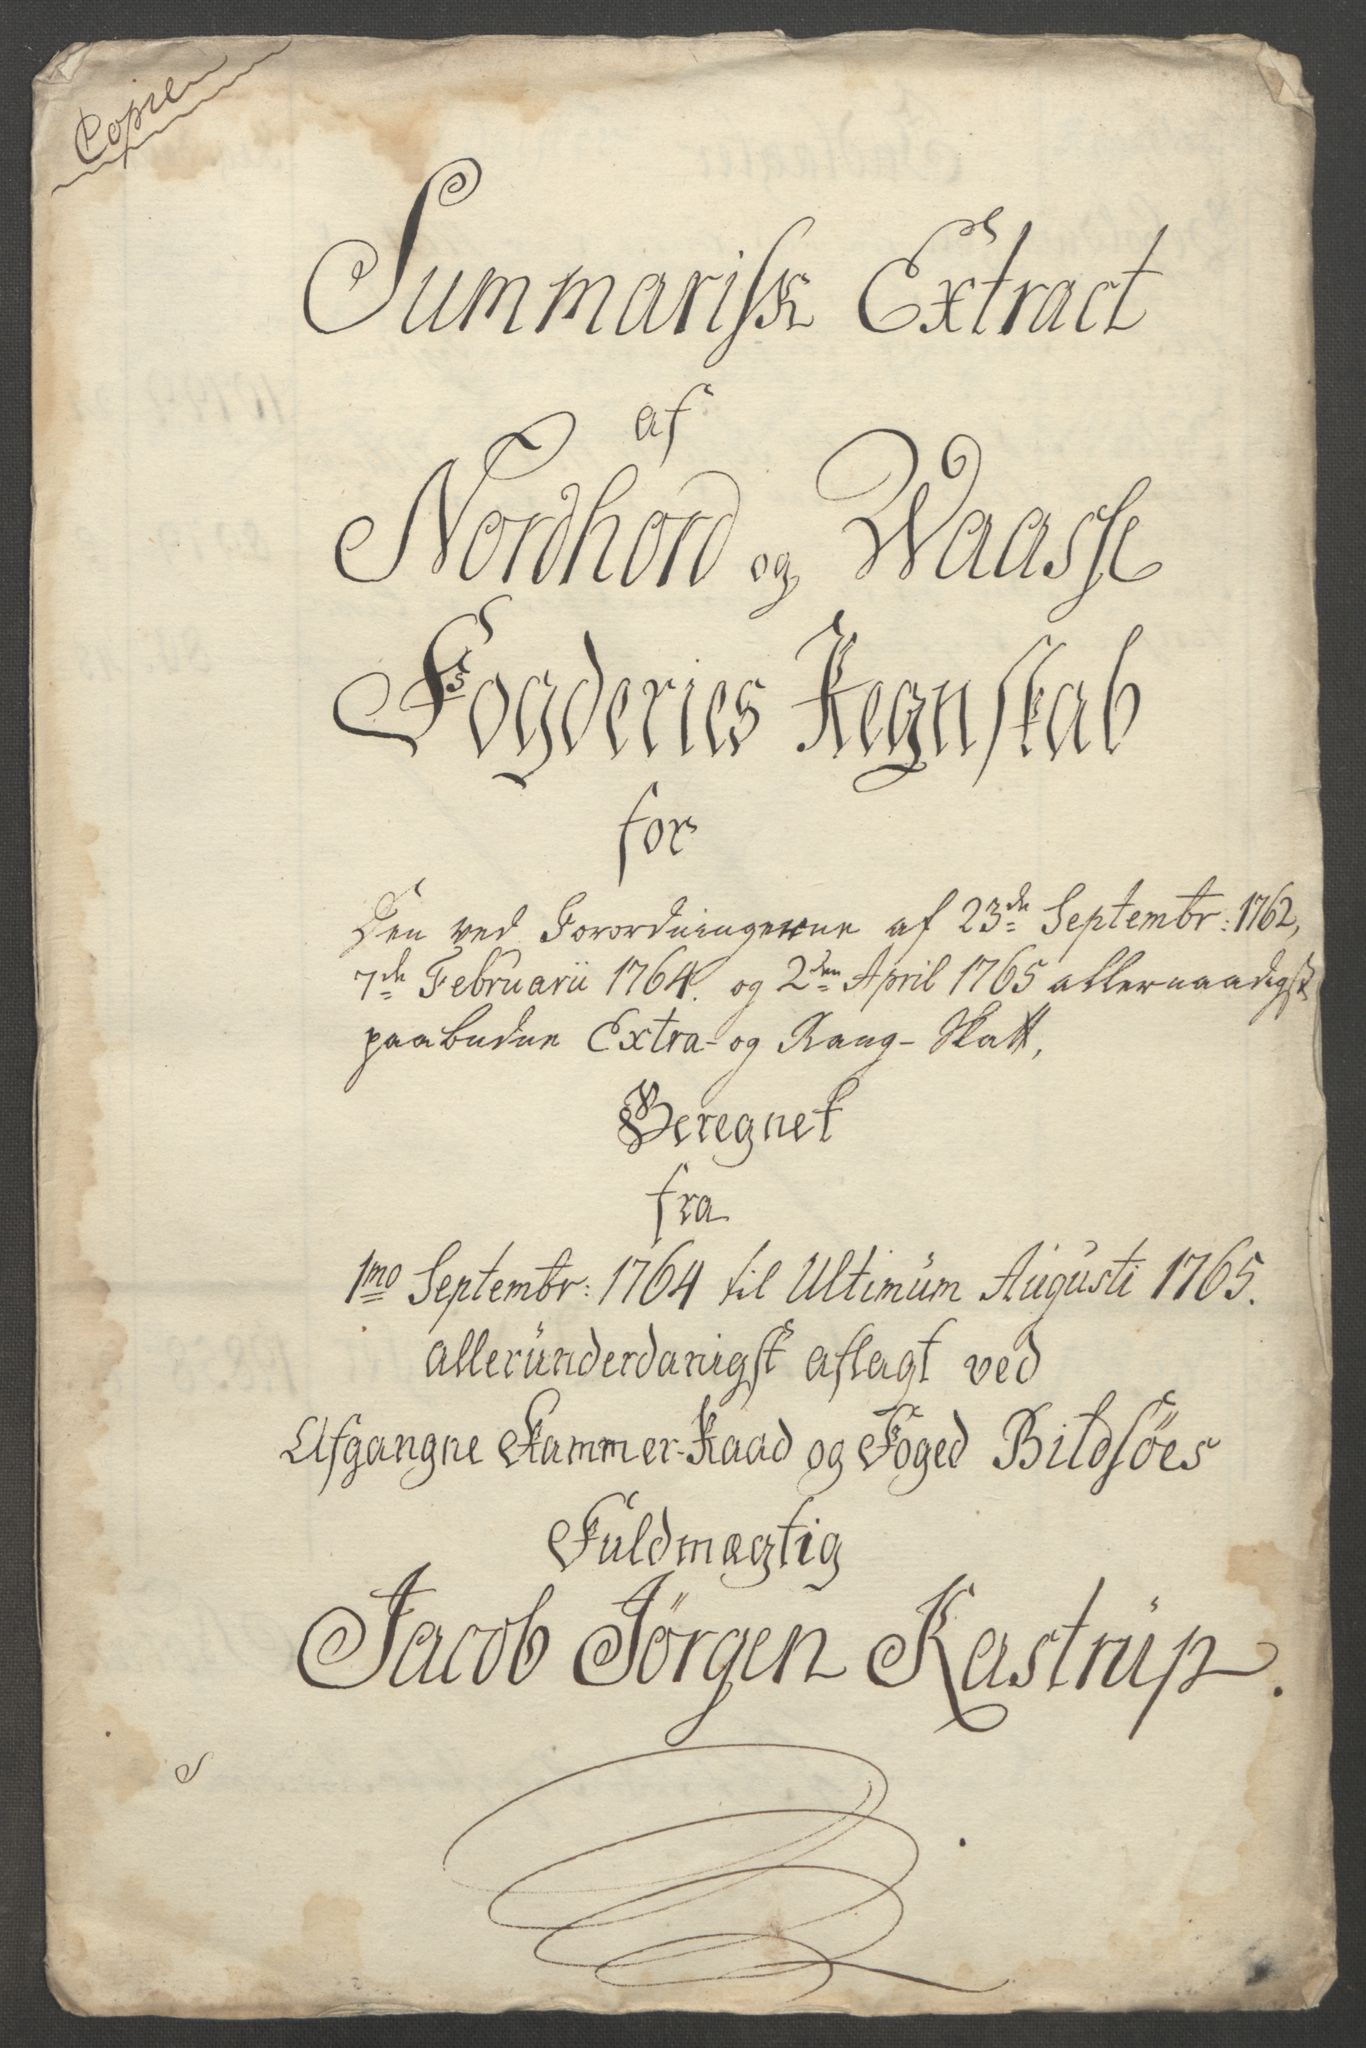 Copie
Summarisk Extract
af
Nordhord og Waasse
Fogderies Regnskab
for
Den ved Forordningerne af 23de Septembr: 1762,
7de Februarii 1764. og 2den April 1765 allernaadigst
paabudne Extra- og Rang-Skatt,
Beregnet
fra
1mo Septembr: 1764 til Ultimüm Augüsti 1765.
alleründerdanigst aflagt ved
Afgangne Kammer-Raad og Foged Bildsöes
Fuldmægtig
Jacob Jörgen Kastrüp.